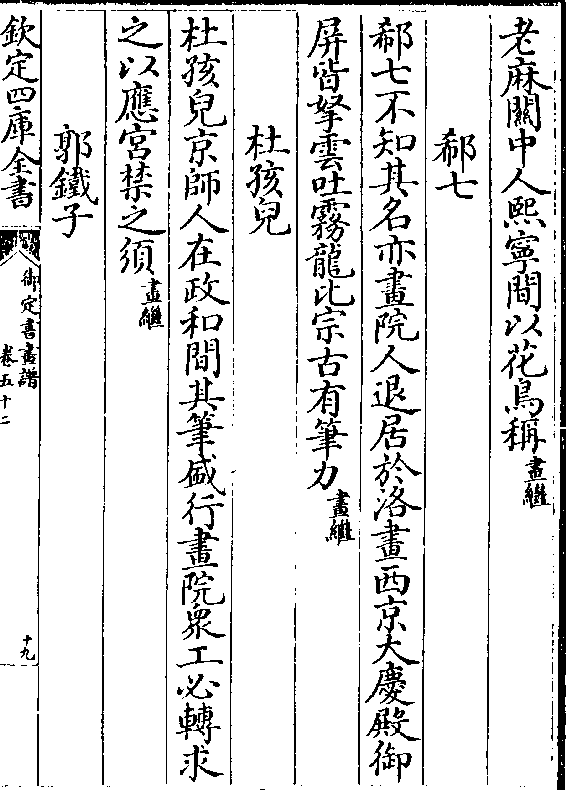 老麻關中人熙寧間以花鳥稱畫繼
郗七
郗七不知其名亦畫院人退居於洛畫西京大慶殿御
屏皆拏雲吐霧龍比宗古有筆力畫繼
杜孩兒
杜孩兒京師人在政和間其筆盛行畫院衆工必轉求
之以應宮禁之須畫繼
郭鐵子
欽定四庫全書
御定書畫譜
卷五十二
十九